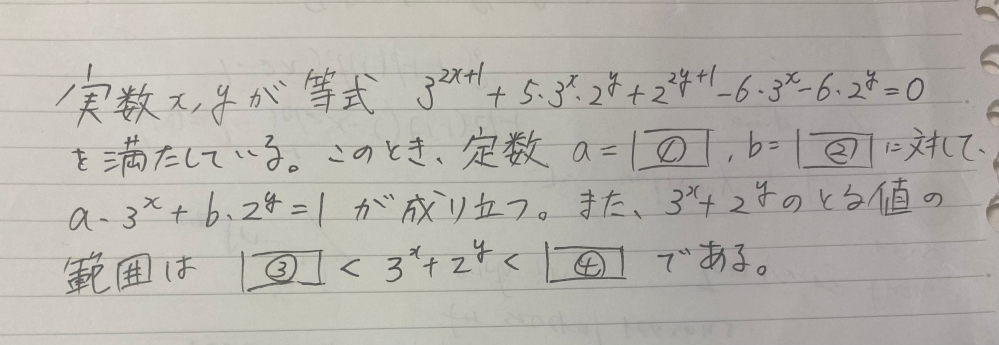 実数x,yが等式 3^{2x+1}+5·3^x·2^y+2^{2y+1}-6·3^x-6·2^y=0
を満たしている。このとき、定数 a=①, b=②に対して、
a·3^x+b·2^y=1 が成り立つ。また、3^x+2^yのとる値の
範囲は ③<3^x+2^y<④ である。